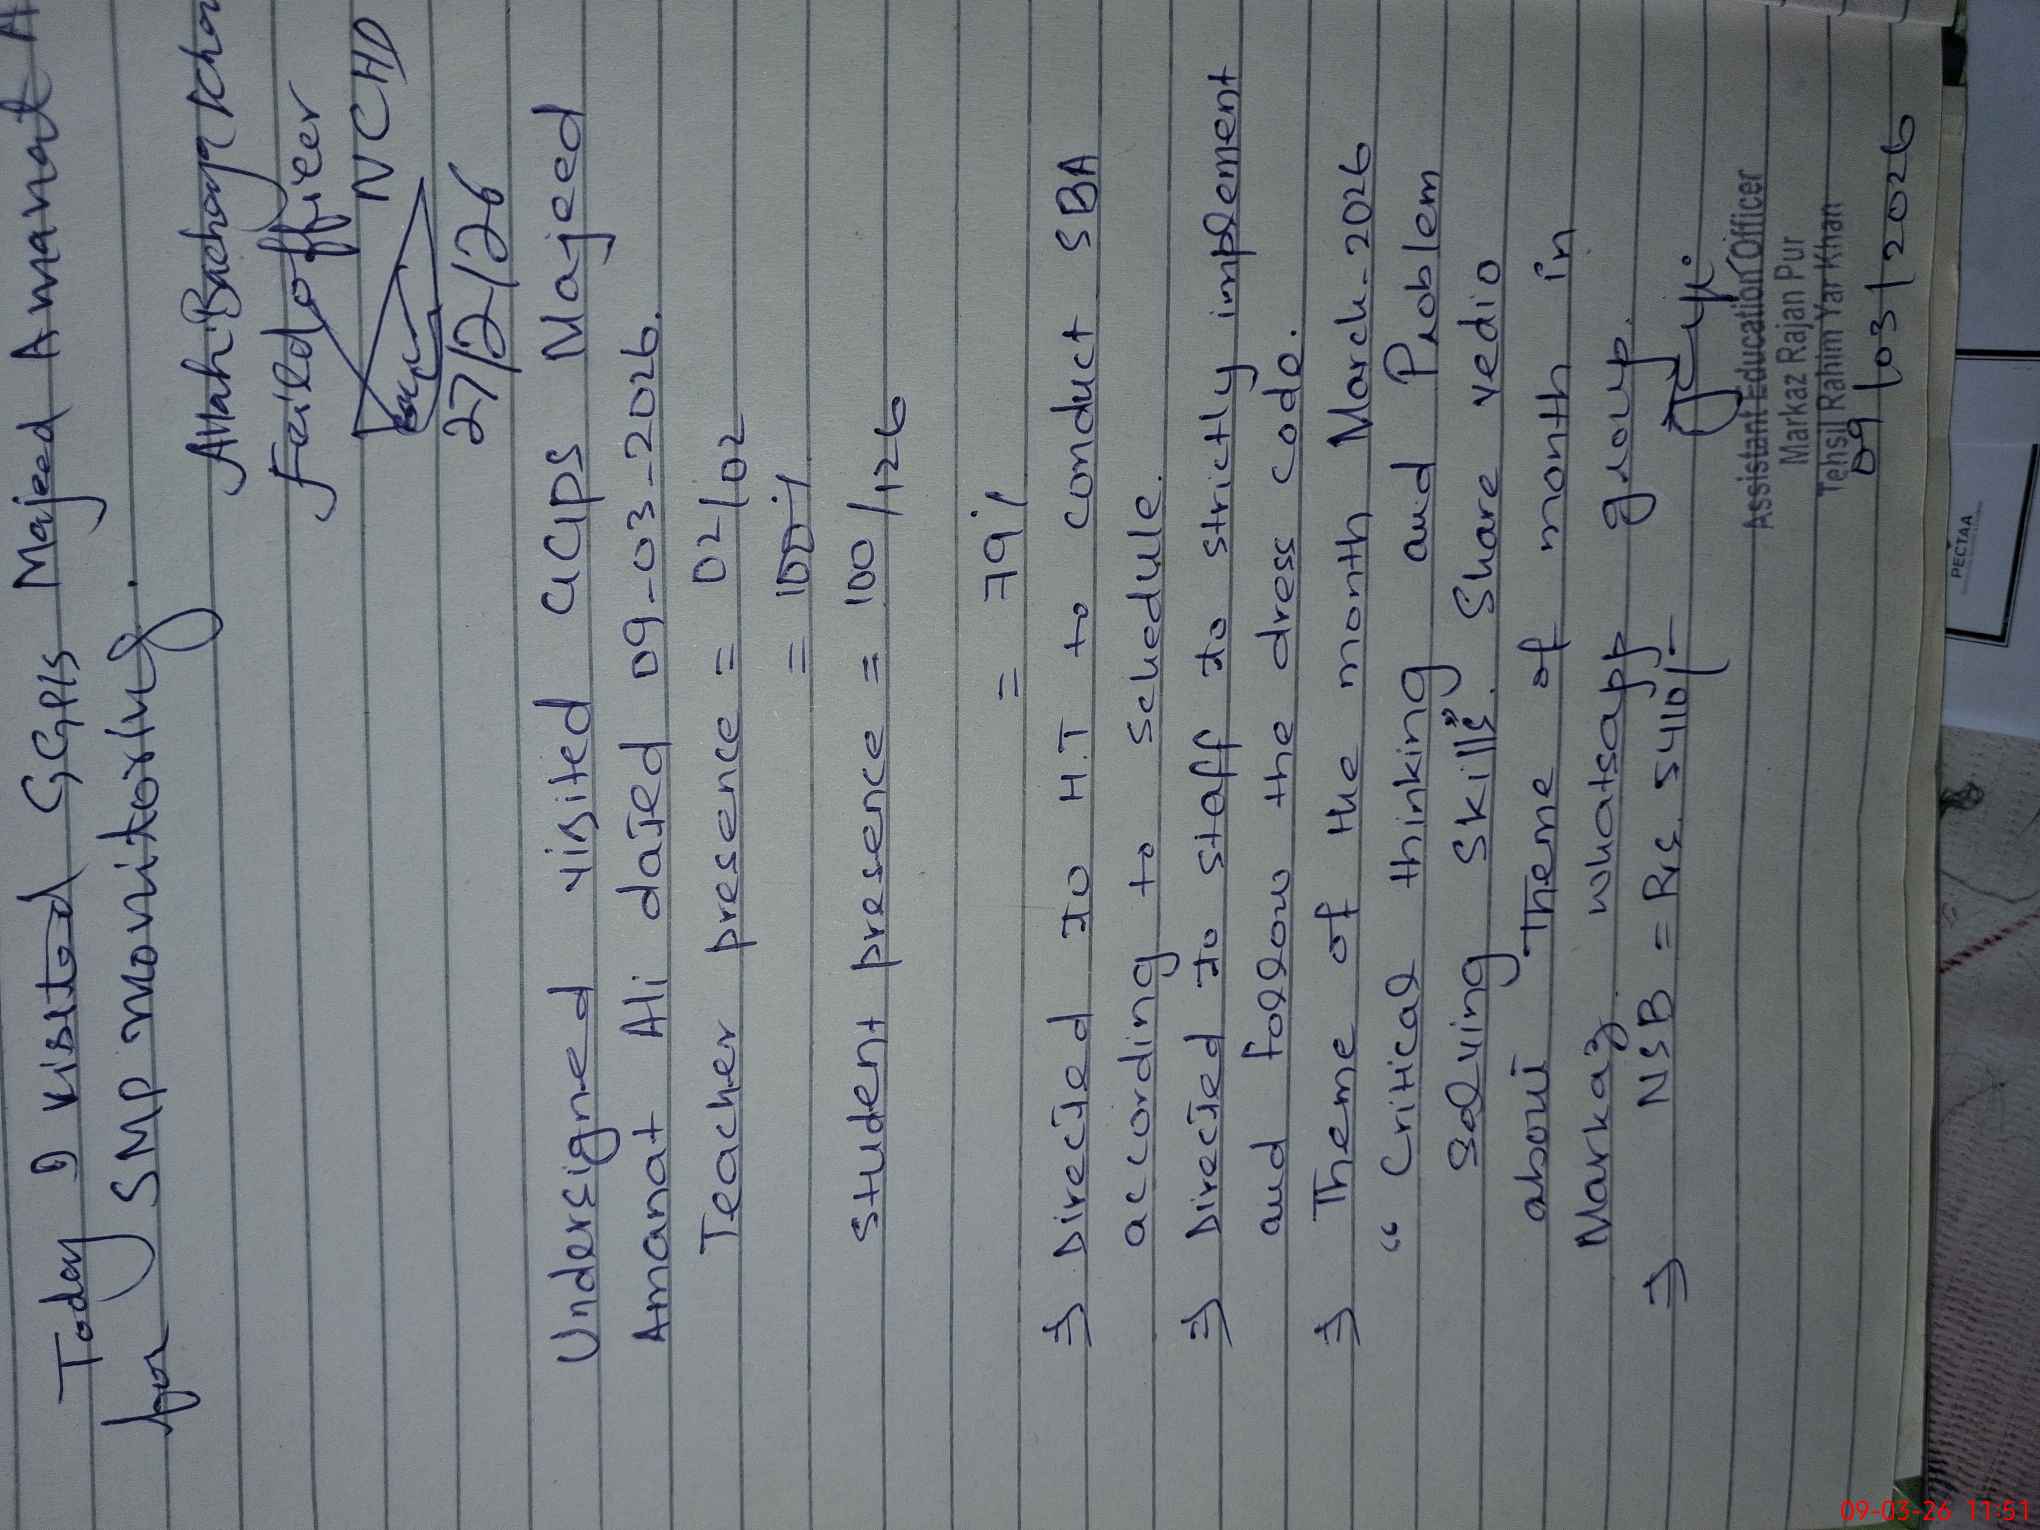 Today I visited GGPS Majeed Amanat A
for SMP monitoring.
Allah Bachaya Khan
Feild officer
NCHD
27/2/26
Undersigned visited GGPS Majeed
Amanat Ali dated 09-03-2026.
Teacher presence = 02/02
= 100%
Student presence = 100/126
= 79%
⇒ Directed to H.T to conduct SBA
according to schedule.
⇒ Directed to staff to strictly implement
and follow the dress code.
⇒ Theme of the month March-2026
"Critical thinking and Problem
Solving Skills". Share vedio
about Theme of month in
Markaz whatsapp group.
⇒ NSB = Rs. 5410/-
Assistant Education Officer
Markaz Rajan Pur
Tehsil Rahim Yar Khan
09/03/2026
PECTAA
09-03-26 11:51